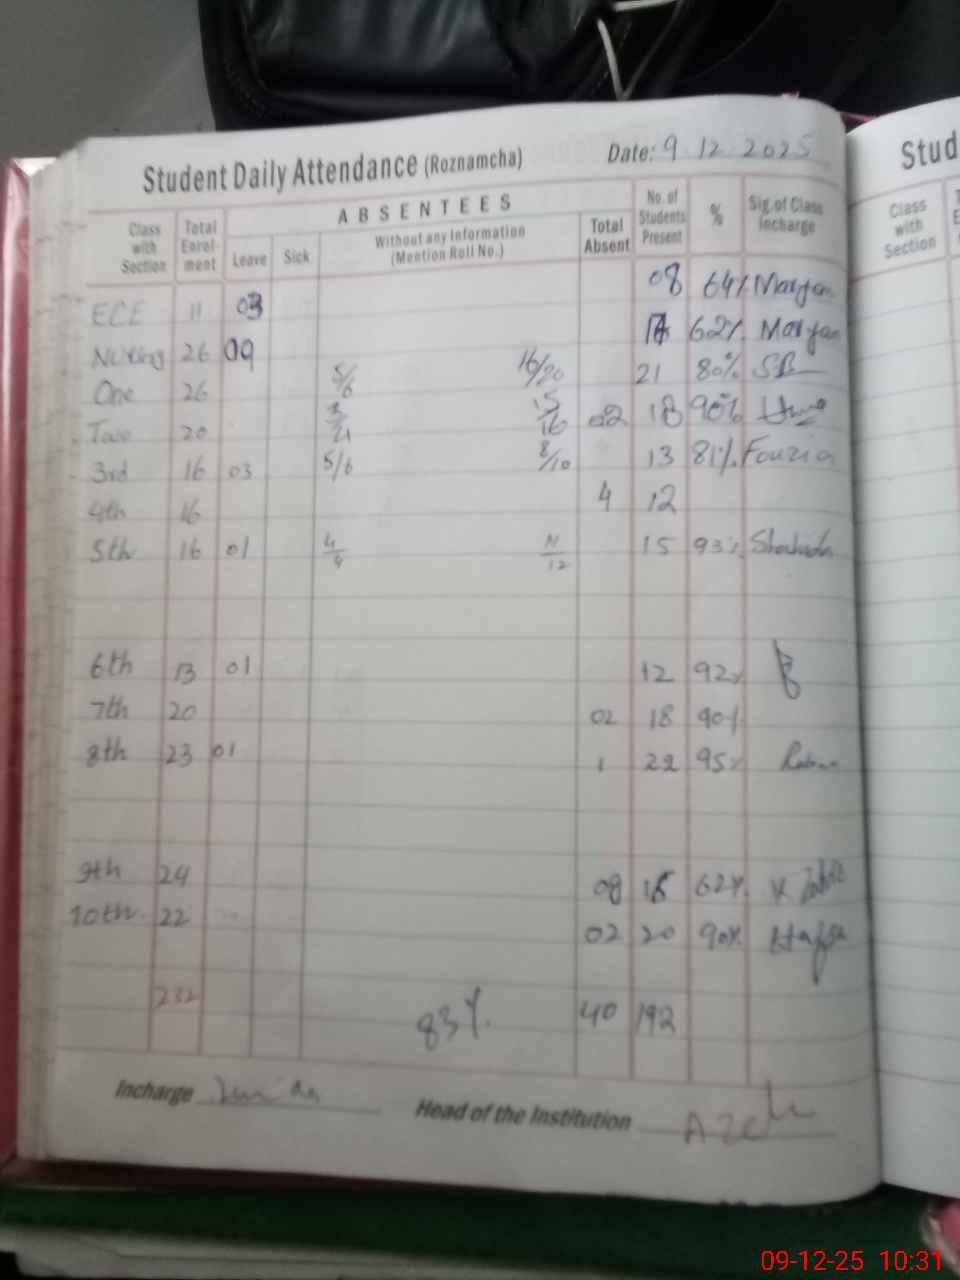 Student Daily Attendance (Roznamcha) Date: 9.12.2025
Class with Section Total Enrol-ment ABSENTEES Leave Sick Without any Information (Mention Roll No.) Total Absent No. of Students Present % Sig. of Class Incharge
ECE 11 03 08 64% Maryam
Nursing 26 09 62% Maryam
One 26 5/6 16/20 21 80% SB
Two 20 3/4 15/16 02 18 90%
3rd 16 03 5/6 8/10 13 81% Fouzia
4th 16 4 12
5th 16 01 4/4 11/12 15 93%
6th 13 01 12 92%
7th 20 02 18 90%
8th 23 01 1 22 95%
9th 24 08 62%
10th 22 02 20 90% Hafsa
232 83% 40 192
Incharge Head of the Institution
Stud
Class with Section
09-12-25 10:31